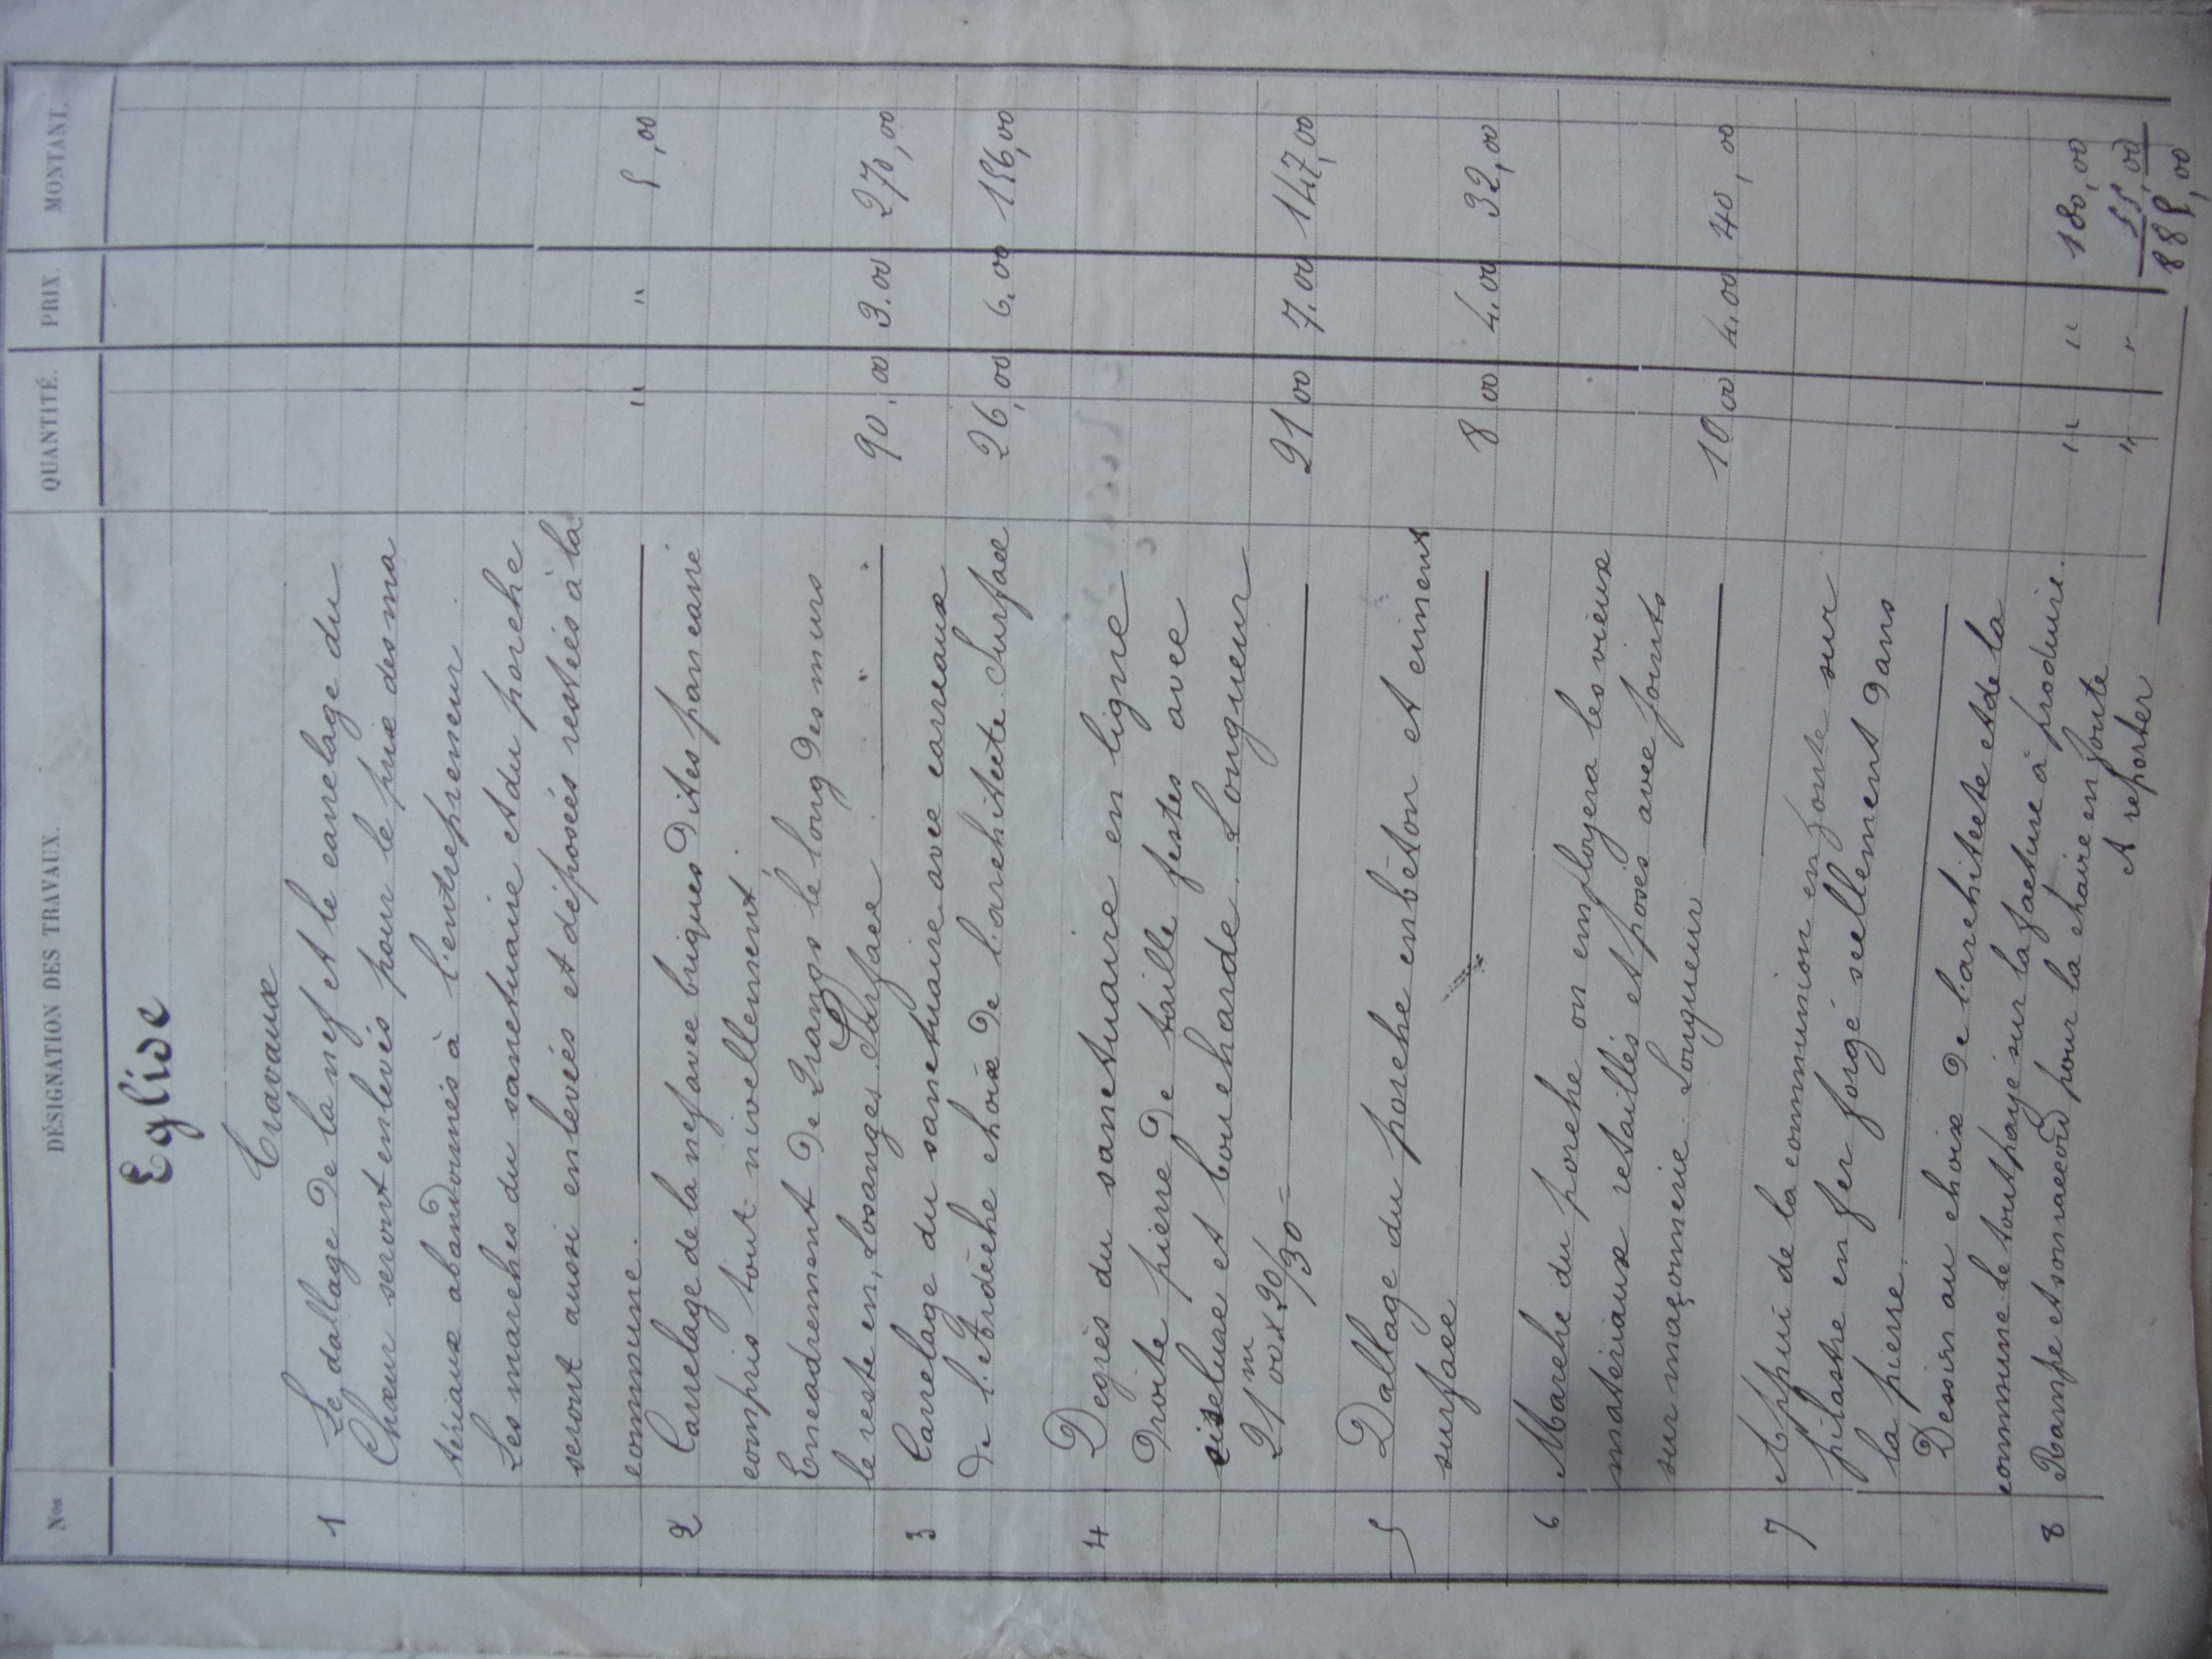 Nos DÉSIGNATION DES TRAVAUX. QUANTITÉ. PRIX. MONTANT.
Eglise
Travaux
1 Le dallage de la nef et le carrelage du
Chœur seront enlevés pour le prix des ma
tériaux abandonnés à l'entrepreneur.
Les marches du sanctuaire et du porche
seront aussi enlevées et déposées restées à la
commune. " " 5,00
2 Carrelage de la nef avec briques dites pan carré
compris tout nivellement;
Encadrement de 2 rangs le long des murs
le reste en, Losanges Surface " 90,00 3.00 270,00
3 Carrelage du sanctuaire avec carreaux
de l'Ardèche choix de l'architecte Surface 26,00 6.00 156,00
4 Degrès du sanctuaire en ligne
droite pierre de taille festes avec
ciselure et boucharde. Longueur
21m00 x 20/30 = 21 00 7.00 147,00
5 Dallage du porche en béton et ciment
surface 8 00 4.00 32,00
6 Marche du porche on employera les vieux
matériaux retaillés et posés avec joints
sur maçonnerie Longueur 10 00 4.00 40,00
7 Appui de la communion en fonte sur
pilastre en fer forgé scellement dans
la pierre.
Dessin au choix de l'architecte et de la
commune le tout payé sur la facture à produire. " " 180,00
8 Rampe et son raccord pour la chaire en fonte " " 55,00
A reporter 885,00